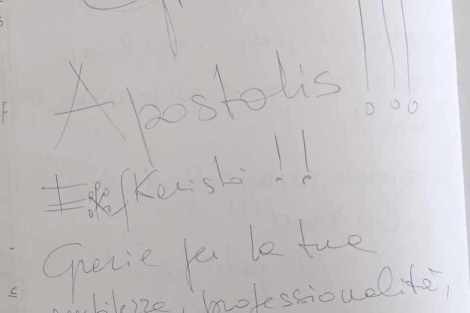 Apostolis !!!
Efkaristò !!
Grazie per la tua
gentilezza, professionalità,